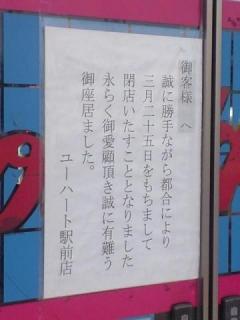 御客様 へ
誠に勝手ながら都合により
三月二十五日をもちまして
閉店いたすこととなりました
永らく御愛顧頂き誠に有難う
御座居ました。
ユーハート駅前店